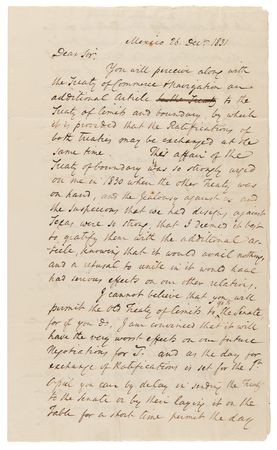 Mexico 26. Decr. 1831
Dear Sir,
You will perceive along with
the Treaty of Commerce & Navigation an
additional Article in the Treaty to the
Treaty of Limits and boundary, by which
it is provided that the Ratifications of
both treaties may be exchanged at the
same time. This affair of the
Treaty of boundary was so strongly urged
on me in 1830 when the other treaty was
on hand, and the jealousy against us and
the suspicions that we had designs against
Texas were so strong, that I deemed it best
to gratify them with the additional ar-
ticle, knowing that it would avail nothing,
and a refusal to unite in it would have
had serious effects on our other relations.
I cannot believe that you will
permit the old Treaty of Limits to the Senate
for if you do, I am convinced that it will
have the very worst effects on our future
Negotiations for T. and as the day for
exchange of Ratifications is set for the 1st
April you can by delay in sending the Treaty
to the Senate or by their laying it on the
Table for a short time permit the day